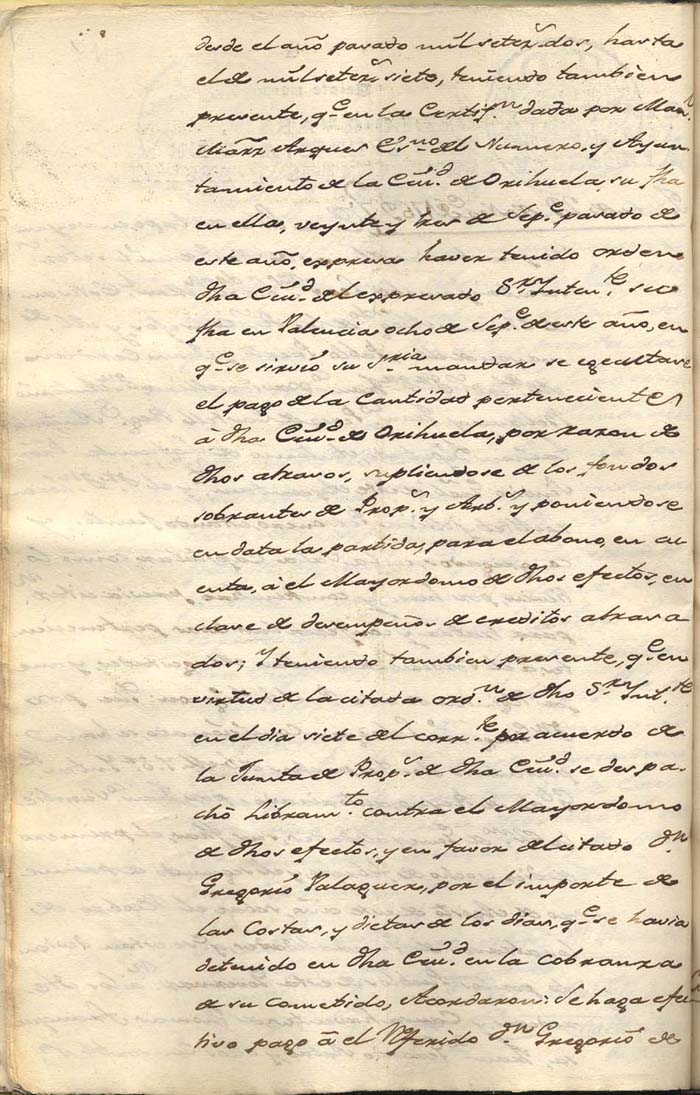 desde el año pasado mil setez.s dos, hasta
el de mil setez.s siete, teniendo tambien
presente, q.e en la Certif.n dada por Man.l
Miarz Arques Es.no del Numero, y Ayun
tamiento de la Ciu.d de Orihuela, su fha
en ella, veynte y tres de Sep.e pasado de
este año, expresa haver tenido orden
dha Ciu.d del expresado S.r Inten.te su
fha en Valencia ocho de Sep.e de este año, en
q.e se sirvió su S.ria mandar se egecutase
el pago de la Cantidad perteneciente
à dha Ciu.d de Orihuela, por razon de
dhos atrasos, supliendose de los fondos
sobrantes de Prop.s y Arb.s y poniendose
en data la partida, para el abono, en cu
enta, à el Mayordomo de dhos efectos, en
clase de desempeños de creditos atrasa
dos; Y teniendo tambien presente, q.e en
virtud de la citada ord.n de dho S.r Int.te
en el dia siete del corr.te por acuerdo de
la Junta de Prop.s de dha Ciu.d se despa
chó Libram.to contra el Mayordomo
de dhos efectos, y en favor del citado d.n
Gregorio Palaguer, por el importe de
las Costas, y dietas de los dias, q.e se havia
detenido en dha Ciu.d en la cobranza
de su cometido, Acordaron: Se haga efec
tivo pago à el Referido d.n Gregorio de